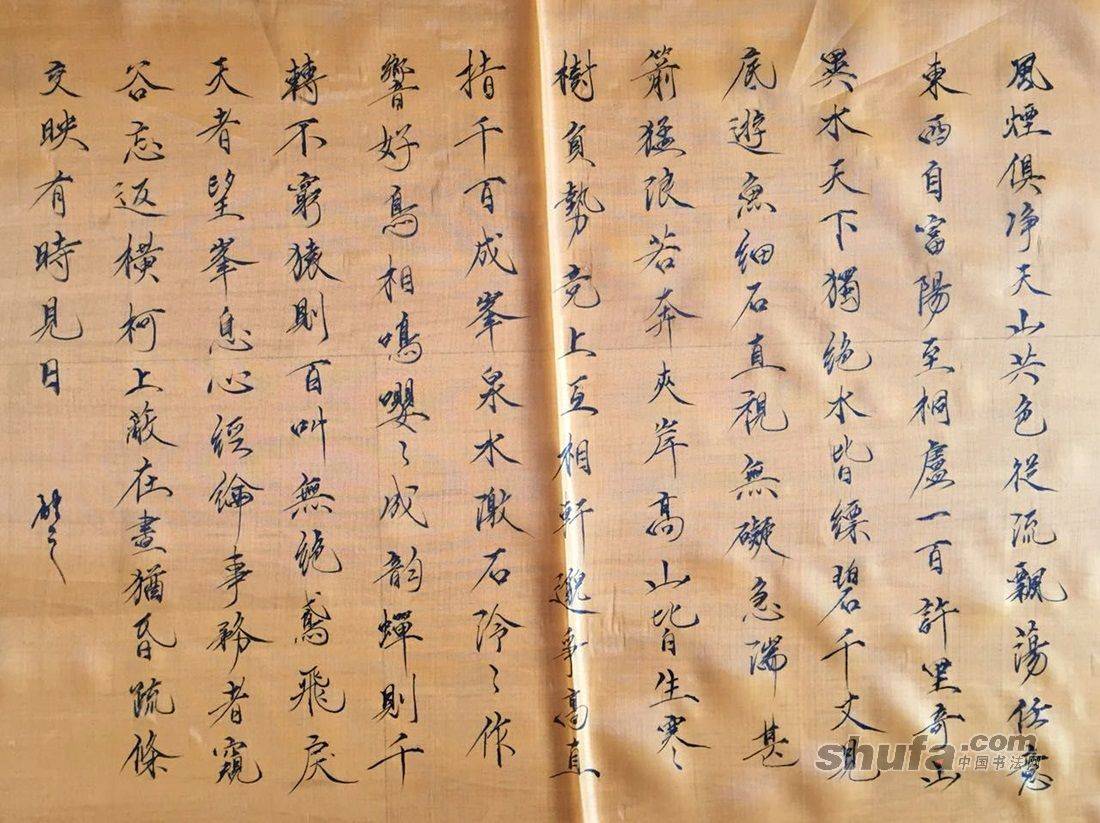 風煙俱净天山共色從流飄蕩任意
東西自富陽至桐廬一百許里奇山
異水天下獨絕水皆縹碧千丈見
底遊魚細石直視無礙急湍甚
箭猛浪若奔夾岸高山皆生寒
樹負勢竞上互相軒邈爭高直
指千百成峯泉水激石泠〻作
響好鳥相鳴嚶〻成韵蟬則千
轉不窮猿則百叫無絕鳶飛戾
天者望峯息心經綸事務者窺
谷忘返橫柯上蔽在晝猶昏疏條
交映有時見日
shufa.com
中国书法网